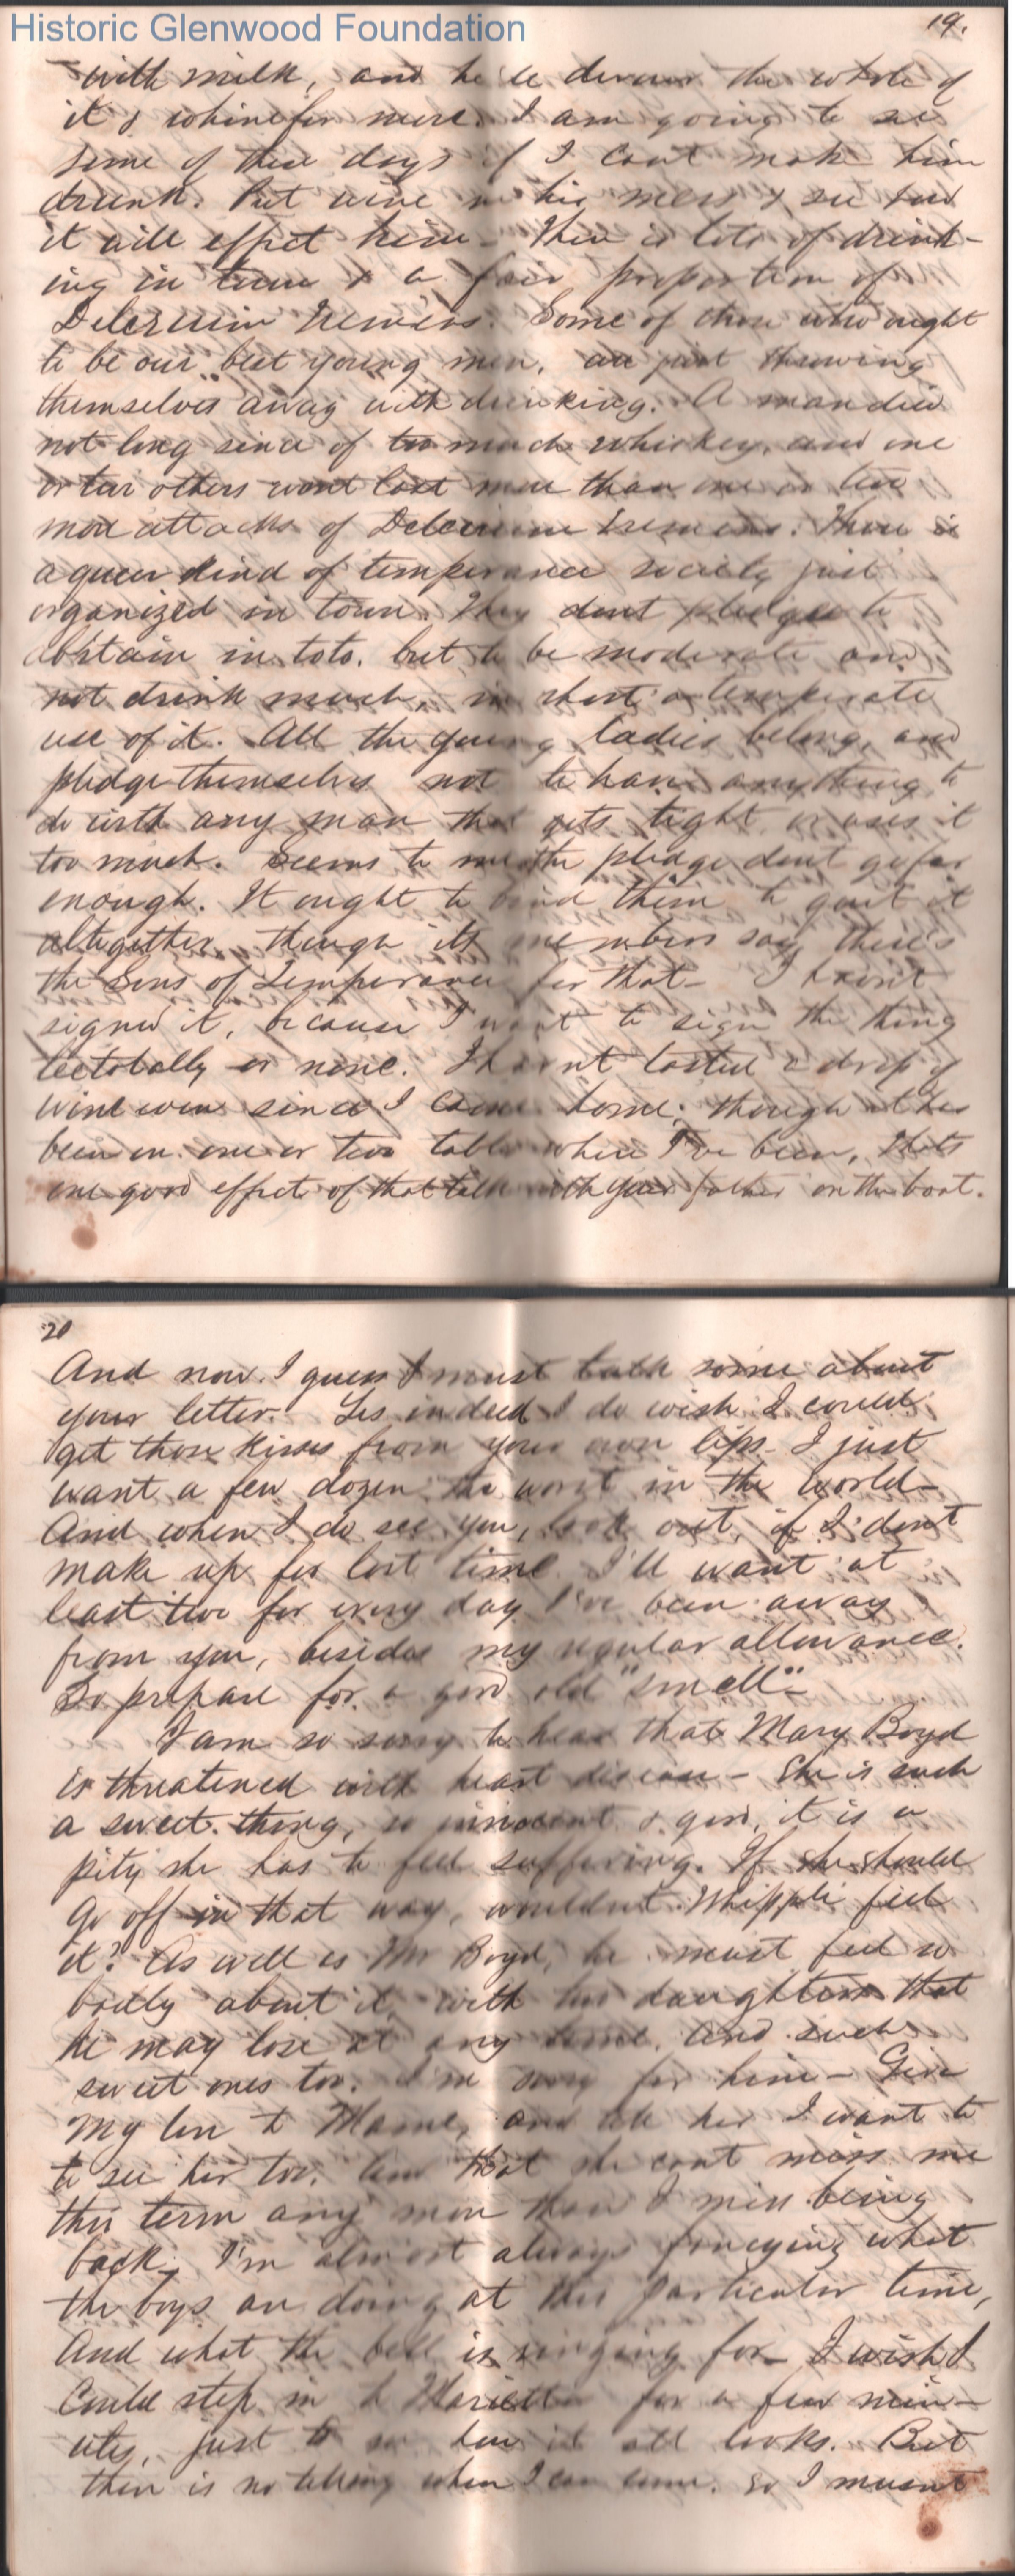 Historic Glenwood Foundation
19.
with milk, and he'le devour the whole of
it & whine for more. I am going to see
some of these days if I cant make him
drunk. Put wine in his mess & see how
it will effect him - There is lots of drink-
ing in town & a fair proportion of
Delerium Tremens. Some of those who ought
to be our "best young men, are just throwing
themselves away with drinking. A man died
not long since of too much whiskey, and one
or two others wont last more than one or two
more attacks of Delerium Tremens. There is
a queer kind of temperance society just
organized in town. They dont pledge to
abstain in toto, but to be moderate and
not drink much, in short a temperate
use of it. All the young ladies belong, and
pledge themselves not to have anything to
do with any man that gets tight or uses it
too much. Seems to me the pledge dont go far
enough. It ought to bind them to quit it
altogether, though its members say there's
the Sons of Temperance for that - I havn't
signed it, because I want to sign the thing
teetotally or none. I havnt tasted a drop of
wine even since I came home; though it has
been on one or two tables where I've been, thats
one good effect of that talk with your father on the boat.
20
And now I guess I must talk some about
your letter. Yes indeed I do wish I could
get those kisses from your own lips - I just
want a few dozen the worst in the world -
And when I do see you, look out, if I dont
make up for lost time. I'll want at
least two for every day I've been away
from you, besides my regular allowance.
So prepare for a good old "smell" -
I am so sorry to hear that Mary Boyd
is threatened with heart disease - She is such
a sweet thing, so innocent & good, it is a
pity she has to feel suffering. If she should
go off in that way, wouldnt Whipple feel
it? As well as Mr Boyd, he must feel so
badly about it, with two daughters that
he may lose at any time, and such
sweet ones too. I'm sorry for him - Give
my love to Mame, and tell her I want to
to see her too. And that she cant miss me
this term any more than I miss being
back. I'm almost always fancying what
the boys are doing at this particular time,
And what the bell is ringing for - I wish I
could step in to Marietta for a few min-
utes, just to see how it all looks. But
there is no telling when I can come. so I musnt